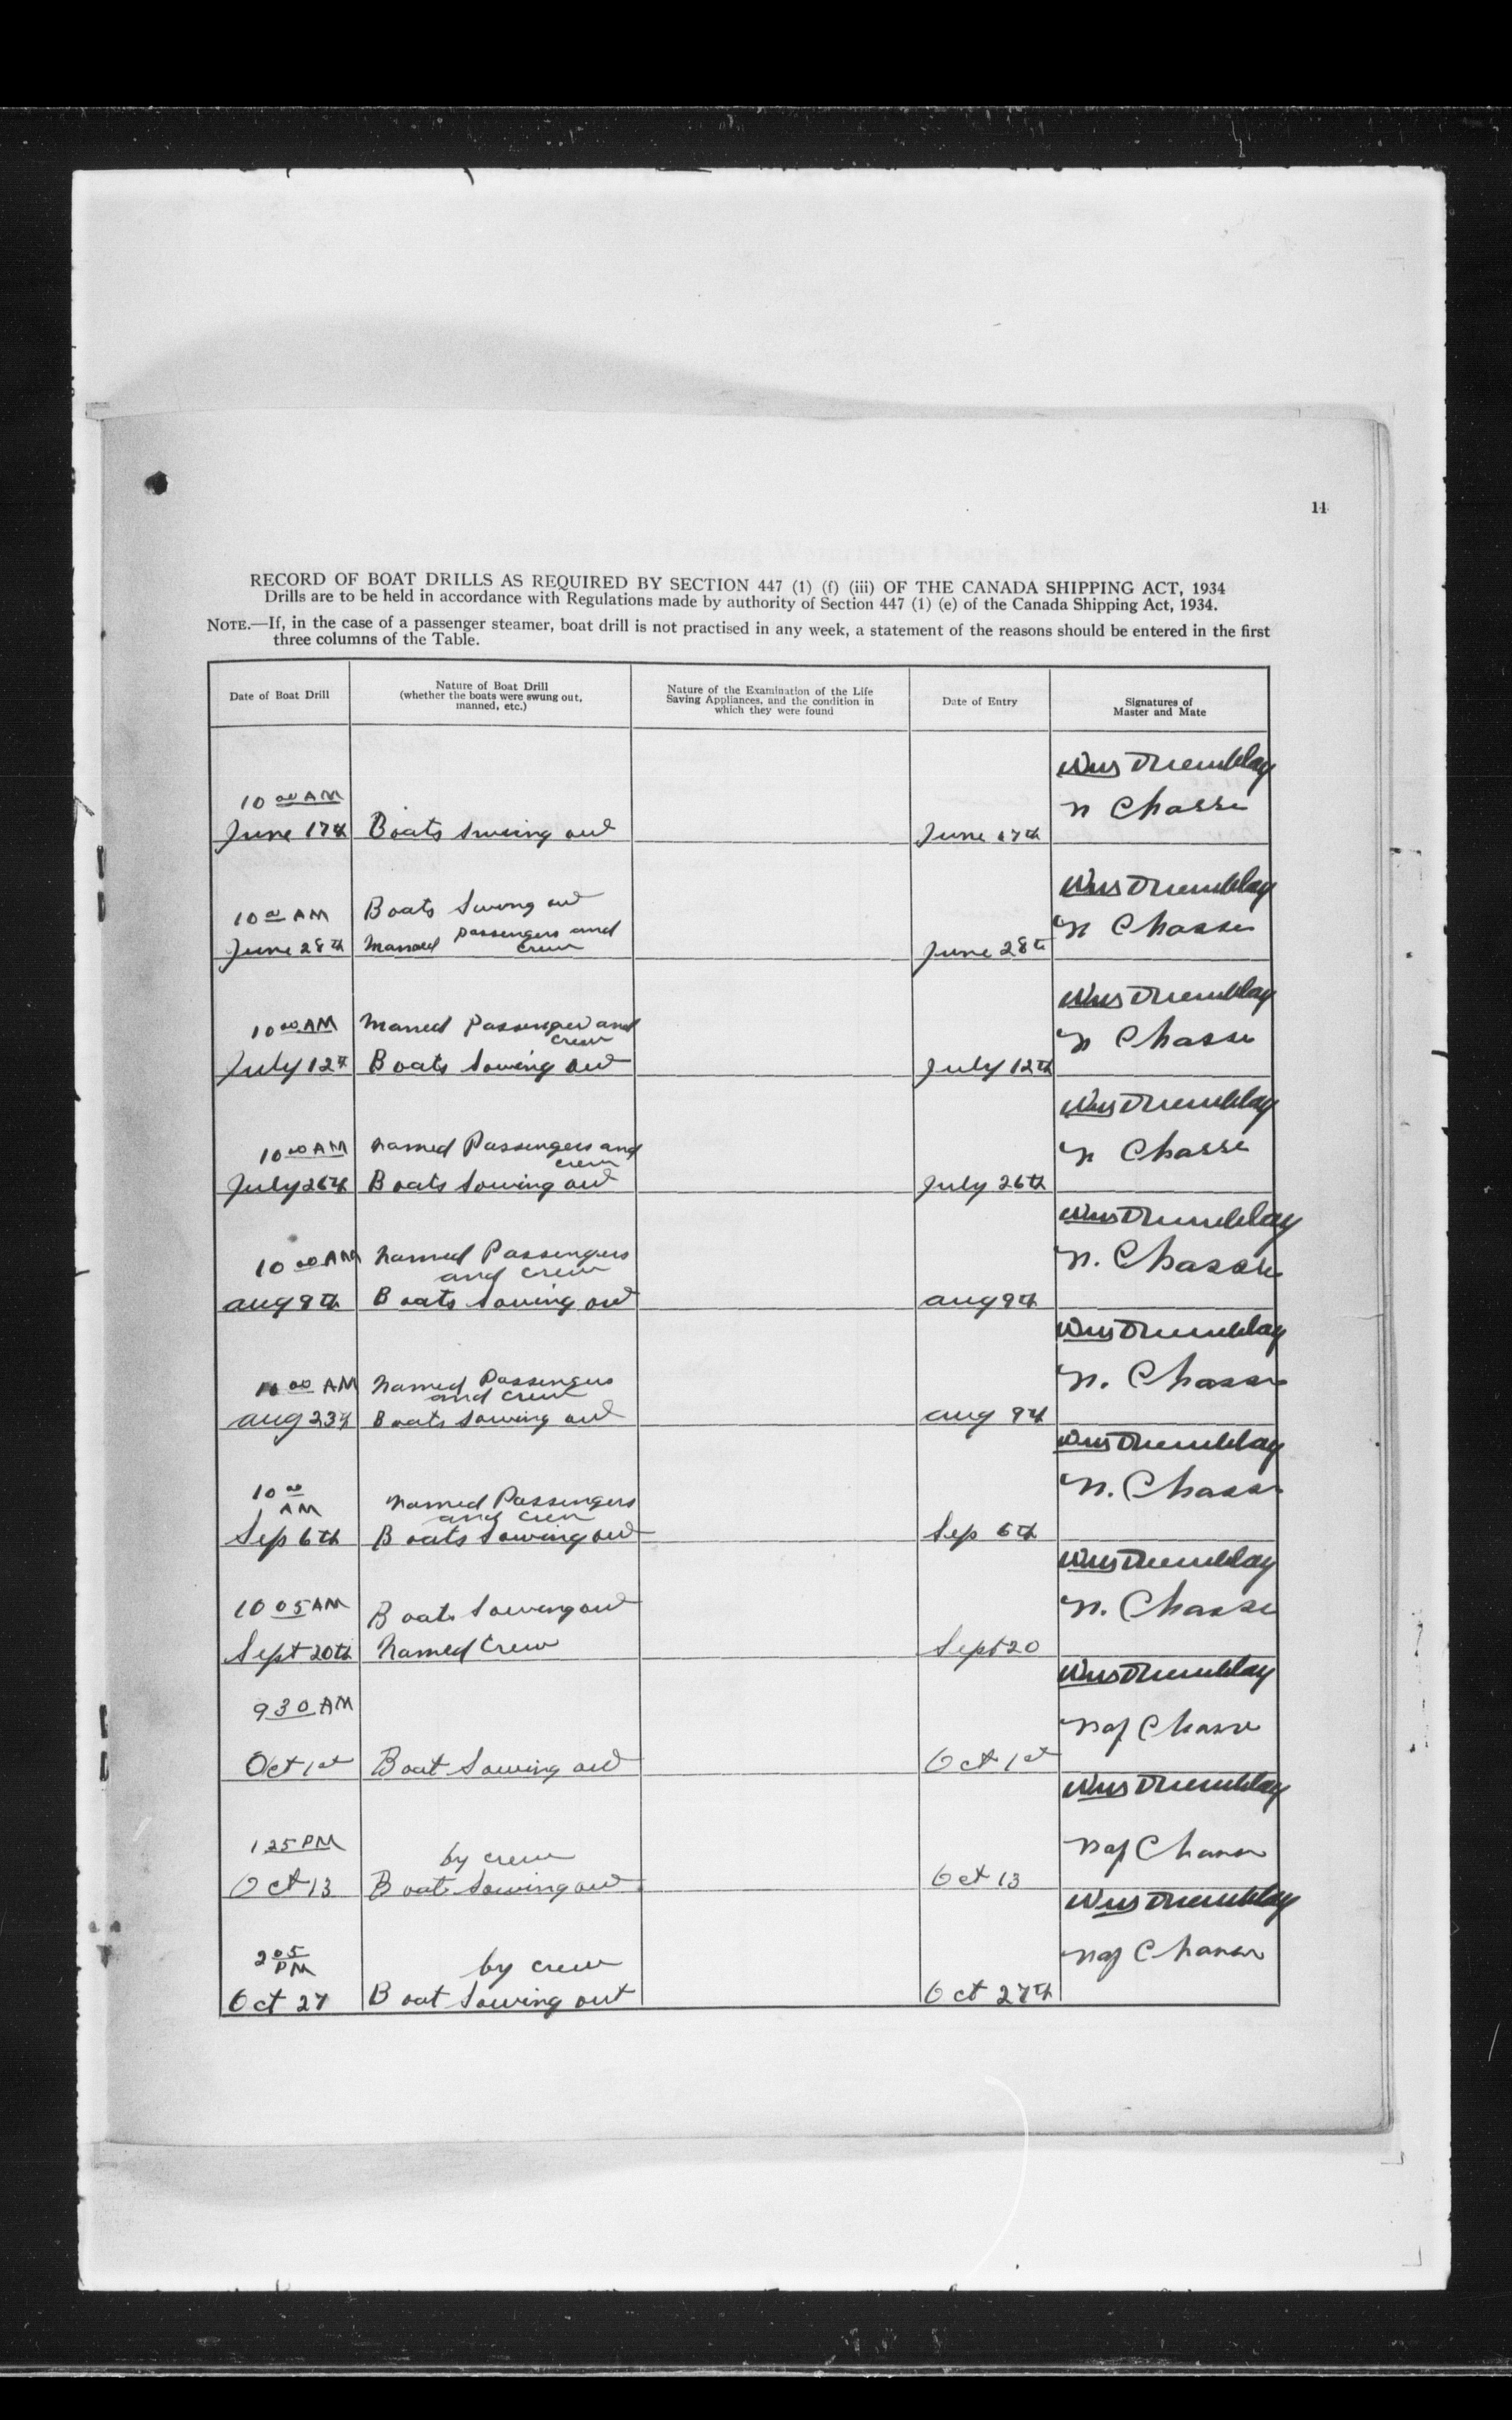 11
RECORD OF BOAT DRILLS AS REQUIRED BY SECTION 447 (1) (f) (iii) OF THE CANADA SHIPPING ACT, 1934
Drills are to be held in accordance with Regulations made by authority of Section 447 (1) (e) of the Canada Shipping Act, 1934.
NOTE.—If, in the case of a passenger steamer, boat drill is not practised in any week, a statement of the reasons should be entered in the first
three columns of the Table.
Date of Boat Drill
Nature of Boat Drill
(whether the boats were swung out,
manned, etc.)
Nature of the Examination of the Life
Saving Appliances, and the condition in
which they were found
Date of Entry
Signatures of
Master and Mate
10 00 AM
June 17th
Boats swing out
June 17th
Tremblay
N Chasse
10 00 AM
June 28th
Boats Swing out
Manned passengers and
crew
June 28th
Tremblay
N Chasse
10 00 AM
July 12th
Manned Passenger and
crew
Boats Sowing out
July 12th
Tremblay
N Chasse
10 00 AM
July 26th
named Passengers and
crew
Boats Sowing out
July 26th
Tremblay
N Chasse
10 00 AM
Aug 9th
named Passengers
and crew
Boats Sowing out
Aug 9th
Tremblay
N. Chasse
10 00 AM
Aug 23rd
named Passengers
and crew
Boats Sowing out
Aug 9th
Tremblay
N. Chasse
10 00
AM
Sep 6th
named Passengers
and crew
Boats Sowing out
Sep 6th
Tremblay
N. Chasse
10 05 AM
Sept 20th
Boats Sowing out
Named Crew
Sept 20
Tremblay
N. Chasse
9 30 AM
Oct 1st
Boat Sowing out
Oct 1st
Tremblay
Nap Chasse
1 25 PM
Oct 13
by crew
Boat Sowing out
Oct 13
Tremblay
Nap Chasse
2 05
PM
Oct 27
by crew
Boat Sowing out
Oct 27th
Tremblay
Nap Chasse